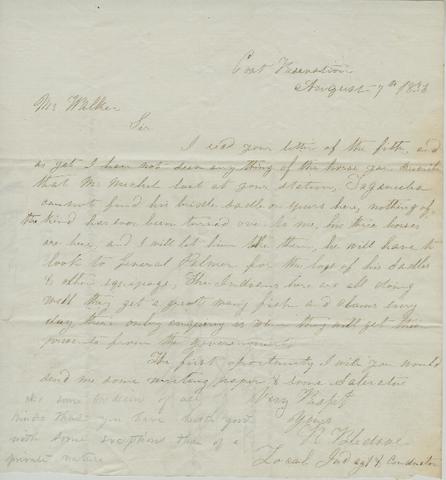 Post Reservation
August 7th 1836
Mr Walker
Sir
I read your letter of the fifth, and
as yet I have not seen any thing of the horse you
that Mr Michel lost at your station,
cannot find his bridle saddle or spurs here, nothing of
the kind has ever been turned over to me, his three horses
are here, and I will let him take them, he will have to
look to General Palmer for the loss of his saddles
& other equipage, The Indians here are all doing
well they get a great many fish and clams every
day, their only enquiry is when they will get their
presents from the government
The first opportunity I wish you would
send me some writing paper, & some Saleratus
Very Respt
Yours
R
Local Ind agt & Conductor
me some of all
kinds that you have
with some exceptions them of a
private nature